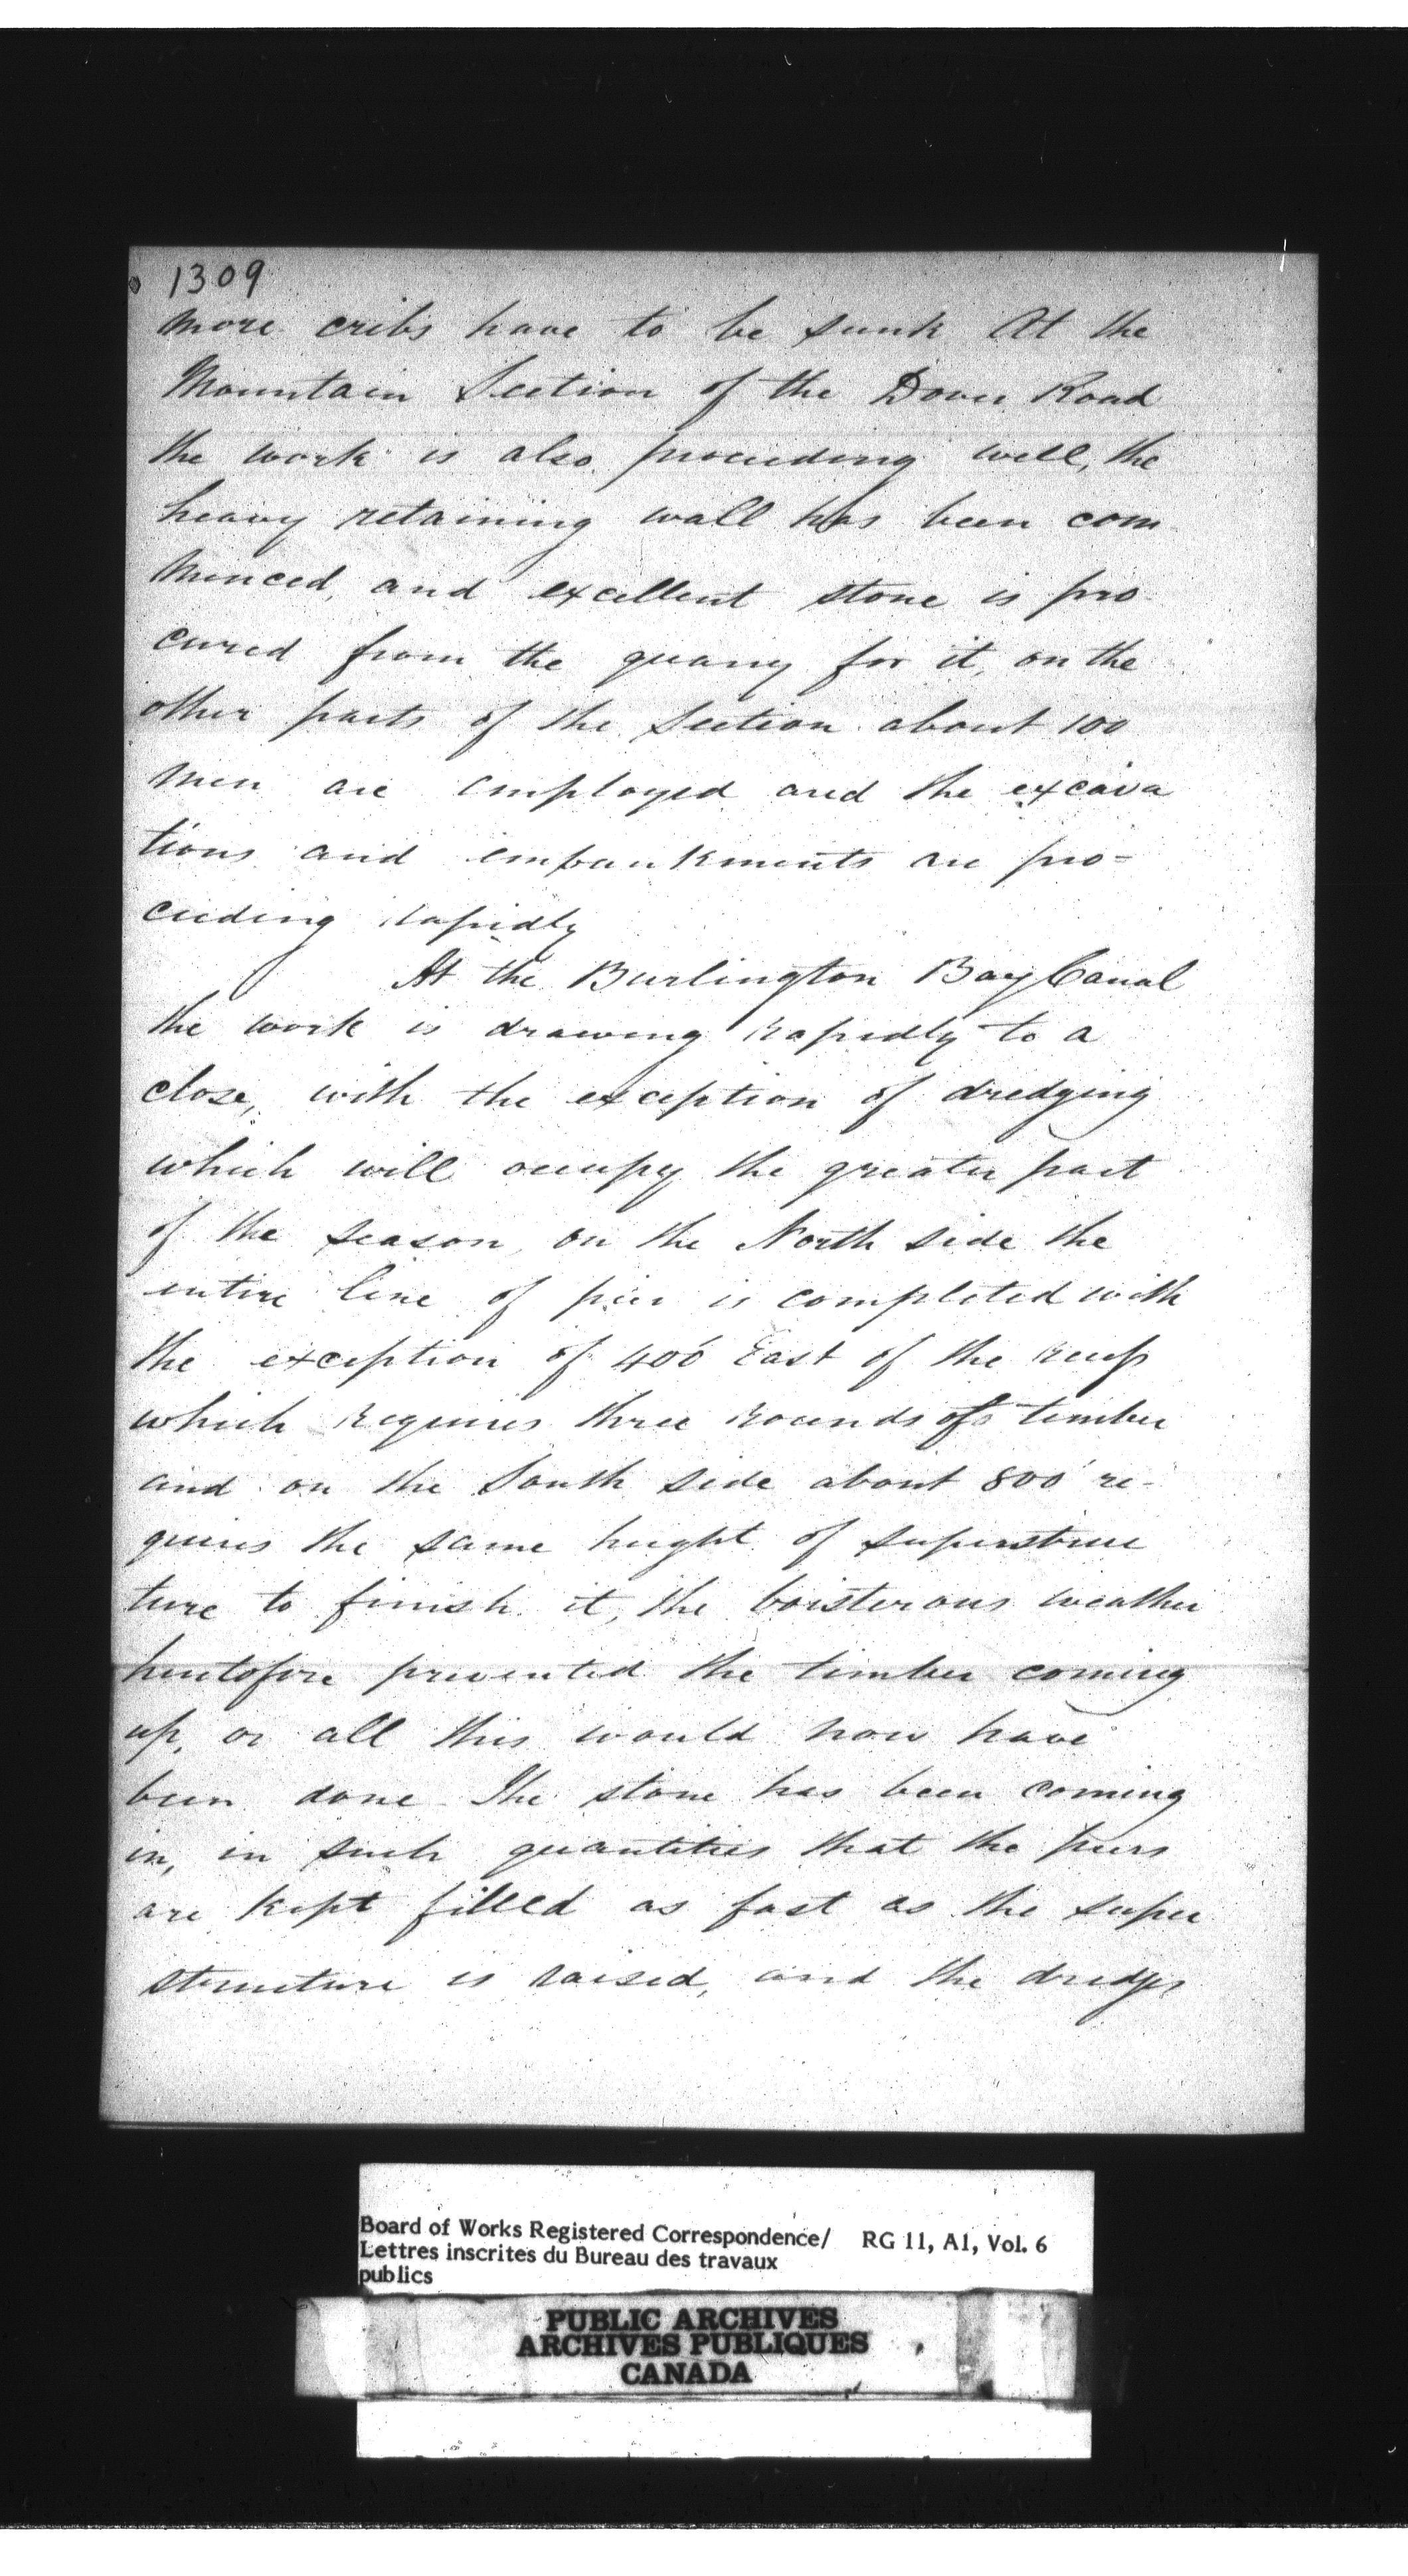 1309
more cribs have to be sunk At the
Mountain Section of the Dover Road
the work is also proceeding well, the
heavy retaining wall has been com
menced, and excellent stone is pro
cured from the quarry for it, on the
other parts of the Section about 100
men are employed and the excava
tions and embankments are pro=
ceeding rapidly
At the Burlington Bay Canal
the work is drawing rapidly to a
close, with the exception of dredging
which will occupy the greater part
of the season, on the North side the
entire line of pier is completed with
the exception of 400' East of the
which requires three rounds of timber
and on the South side about 800' re-
quires the same height of superstruc
ture to finish it, the boisterous weather
heretofore prevented the timber coming
up, or all this would now have
been done The stone has been coming
in, in such quantities that the piers
are kept filled as fast as the super
structure is raised, and the dredges
Board of Works Registered Correspondence/ RG 11, A1, Vol. 6
Lettres inscrites du Bureau des travaux
publics
PUBLIC ARCHIVES
ARCHIVES PUBLIQUES
CANADA